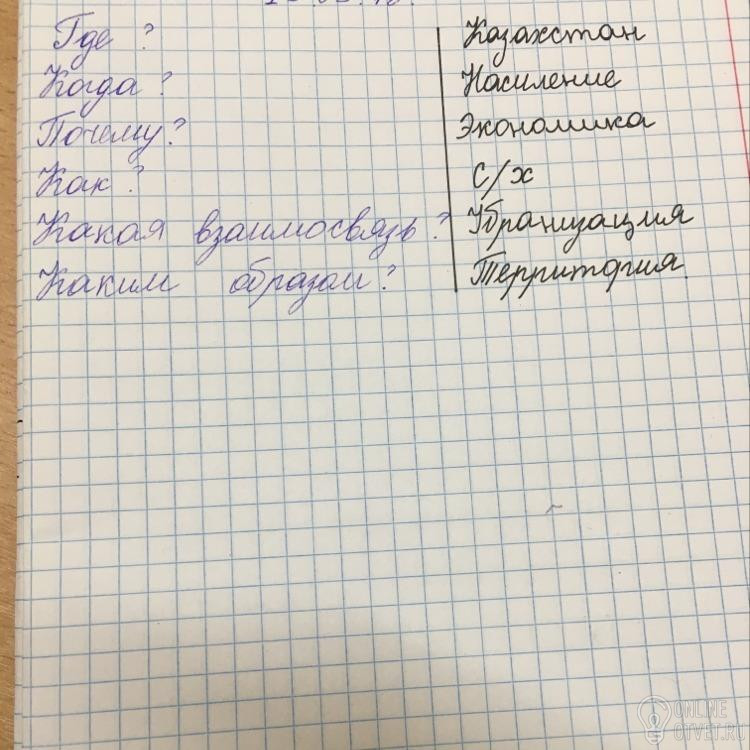 Где ? Казахстан
Когда ? Насиление
Почему ? Экономика
Как ? С/х
Какая взаимосвязь ? Убранизация
Каким образом ? Территория
ONLINE
OTVET.RU